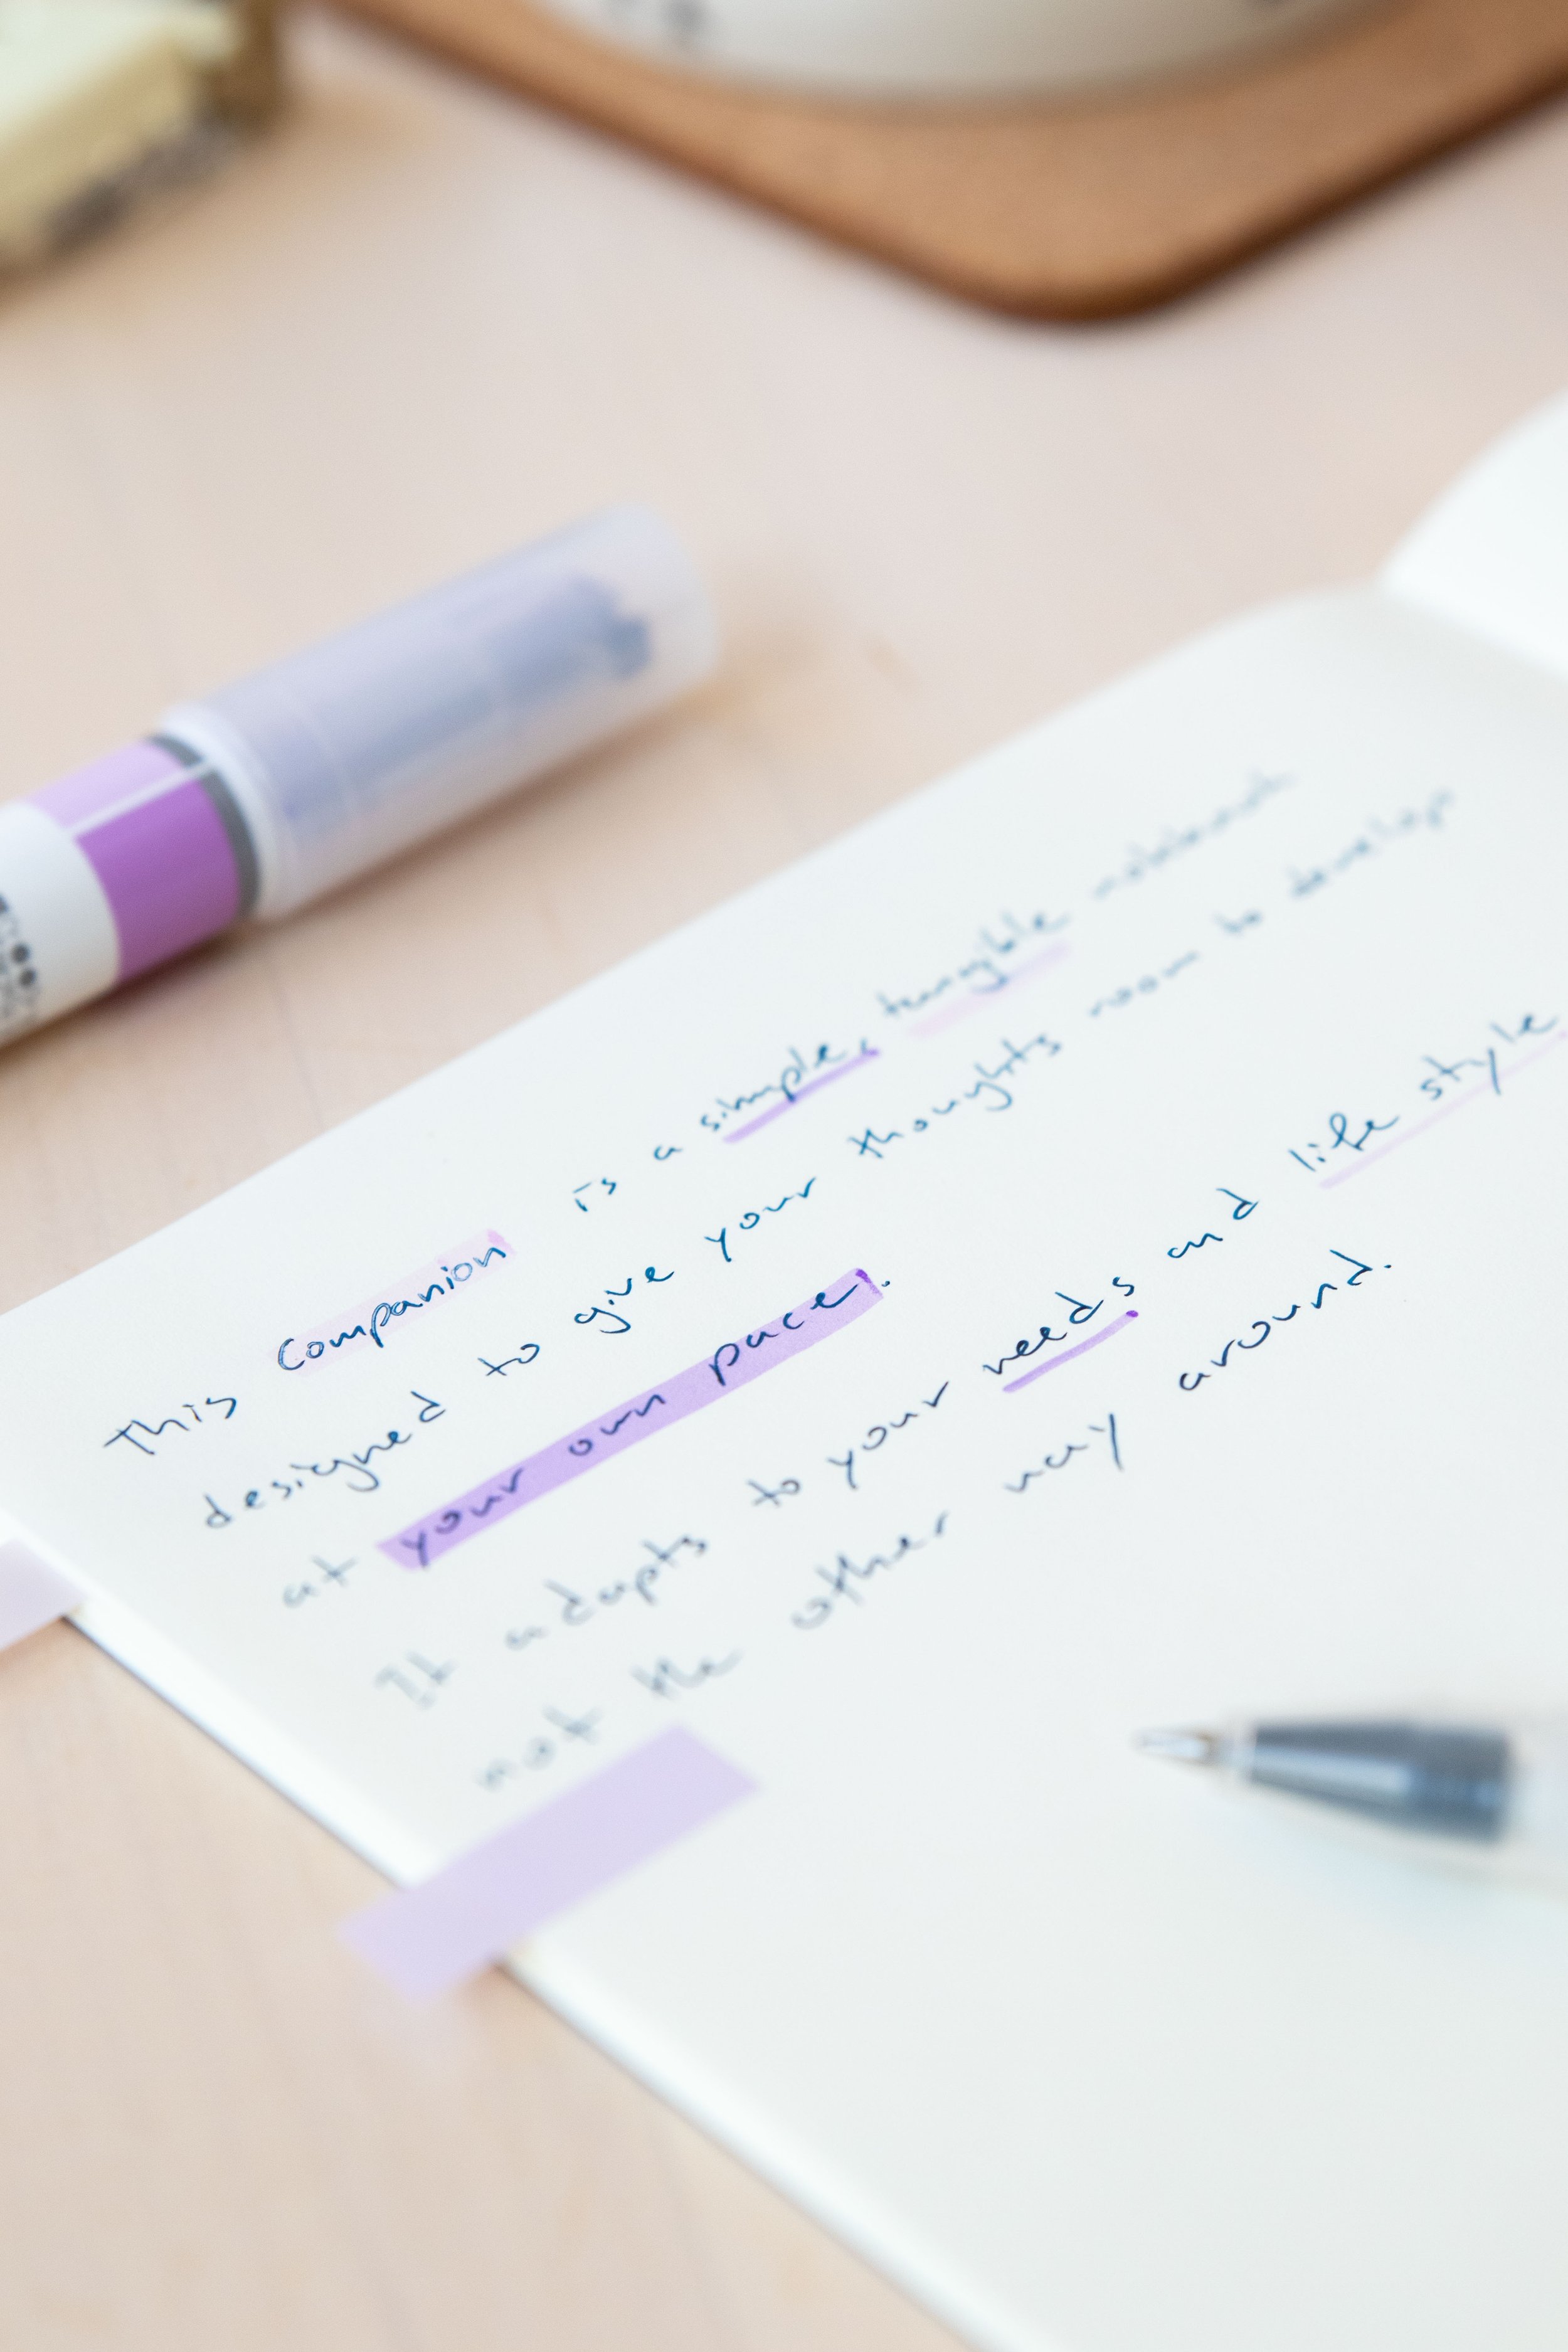 This Companion is a simple, tangible notebook
designed to give your thoughts room to develop
at your own pace.
It adapts to your needs and life style
not the other way around.